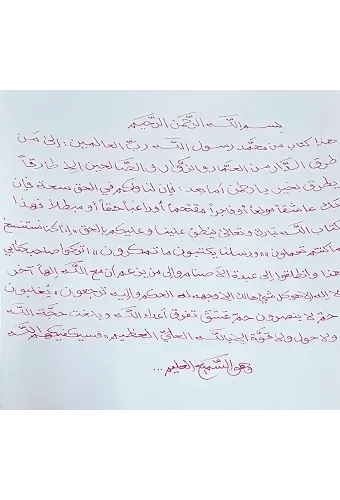 بسم الله الرَّحْمَنِ الرَّحِيمِ
هذا كتاب من محمد رسول الله ربّ العالمين : إلى مَن
طرق الدّار من العمّار والزوّار والصّالحين إلا طارقاً
يطرق بخير يا رحمن أما بعد : فإن لنا ولكم في الحق سعة فإن
تك عاشقاً مولعاً أو فاجراً مقتحماً أو داعياً حقاً أو مبطلاً فهذا
كتاب الله تبارك وتعالى ينطق علينا وعليكم بالحق «إنا كنا نستنسخ
ما كنتم تعملون» «ورسلنا يكتبون ما تمكرون» اتركوا صاحب كتابي
هذا وانطلقوا إلى عبدة الأصنام وإلى من يزعم أن مع الله إلهاً آخر
لا إله إلا هو كل شيء هالك إلا وجهه له الحكم وإليه ترجعون» يُغلبون
حم لا ينصرون حم عسق تفرق أعداء الله وبلغت حجّة الله
ولا حول ولا قوّة إلا بالله العليّ العظيم «فسيكفيكهم الله
وهو السّميع العليم ...